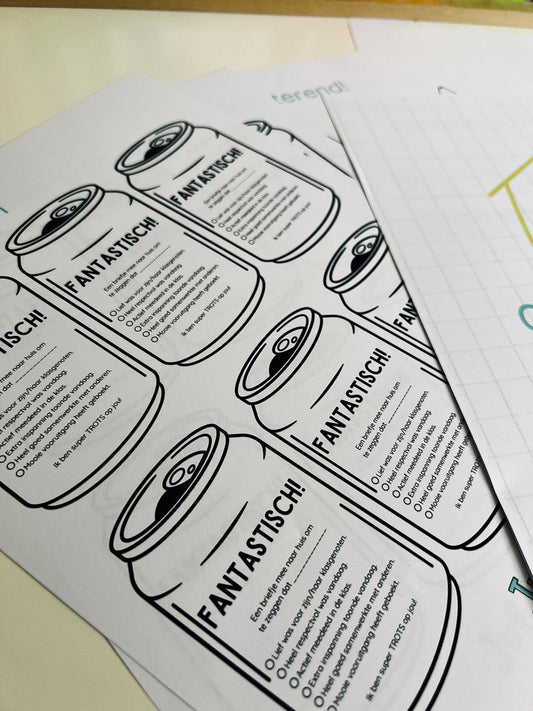 terend!
FANTASTISCH!
Een briefje mee naar huis om
te zeggen dat
Lief was voor zijn/haar klasgenoten.
Heel respectvol was vandaag.
Actief meedeed in de klas.
Extra inspanning toonde vandaag.
Heel goed samenwerkte met anderen.
Mooie vooruitgang heeft geboekt.
Ik ben super TROTS op jou!
FANTASTISCH!
Een briefje mee naar huis om
te zeggen dat
Lief was voor zijn/haar klasgenoten.
Heel respectvol was vandaag.
Actief meedeed in de klas.
Extra inspanning toonde vandaag.
Heel goed samenwerkte met anderen.
Mooie vooruitgang heeft geboekt.
Ik ben super TROTS op jou!
TISCH!
mee naar huis om
dat
as voor zijn/haar klasgenoten.
respectvol was vandaag.
Actief meedeed in de klas.
Extra inspanning toonde vandaag.
Heel goed samenwerkte met anderen.
Mooie vooruitgang heeft geboekt.
Ik ben super TROTS op jou!
FAN
FANTASTISCH!
Een briefje mee naar huis om
te zeggen dat
Lief was voor zijn/haar klasgenoten.
Heel respectvol was vandaag.
Actief meedeed in de klas.
Extra inspanning toonde vandaag.
Heel goed samenwerkte met an
Mooie vooruitgang heeft geboekt.
Ik ben super TROTS
FANTASTISCH!
Een briefje mee naar huis om
te zeggen dat
Lief was voor zijn/haar klasgenoten.
Heel respectvol was vandaag.
Actief meedeed in de klas.
Extra inspanning toonde vandaag.
Heel goed samenwerkte met anderen.
Mooie vooruitgang heeft geboekt.
Ik ben super TROTS op jou!